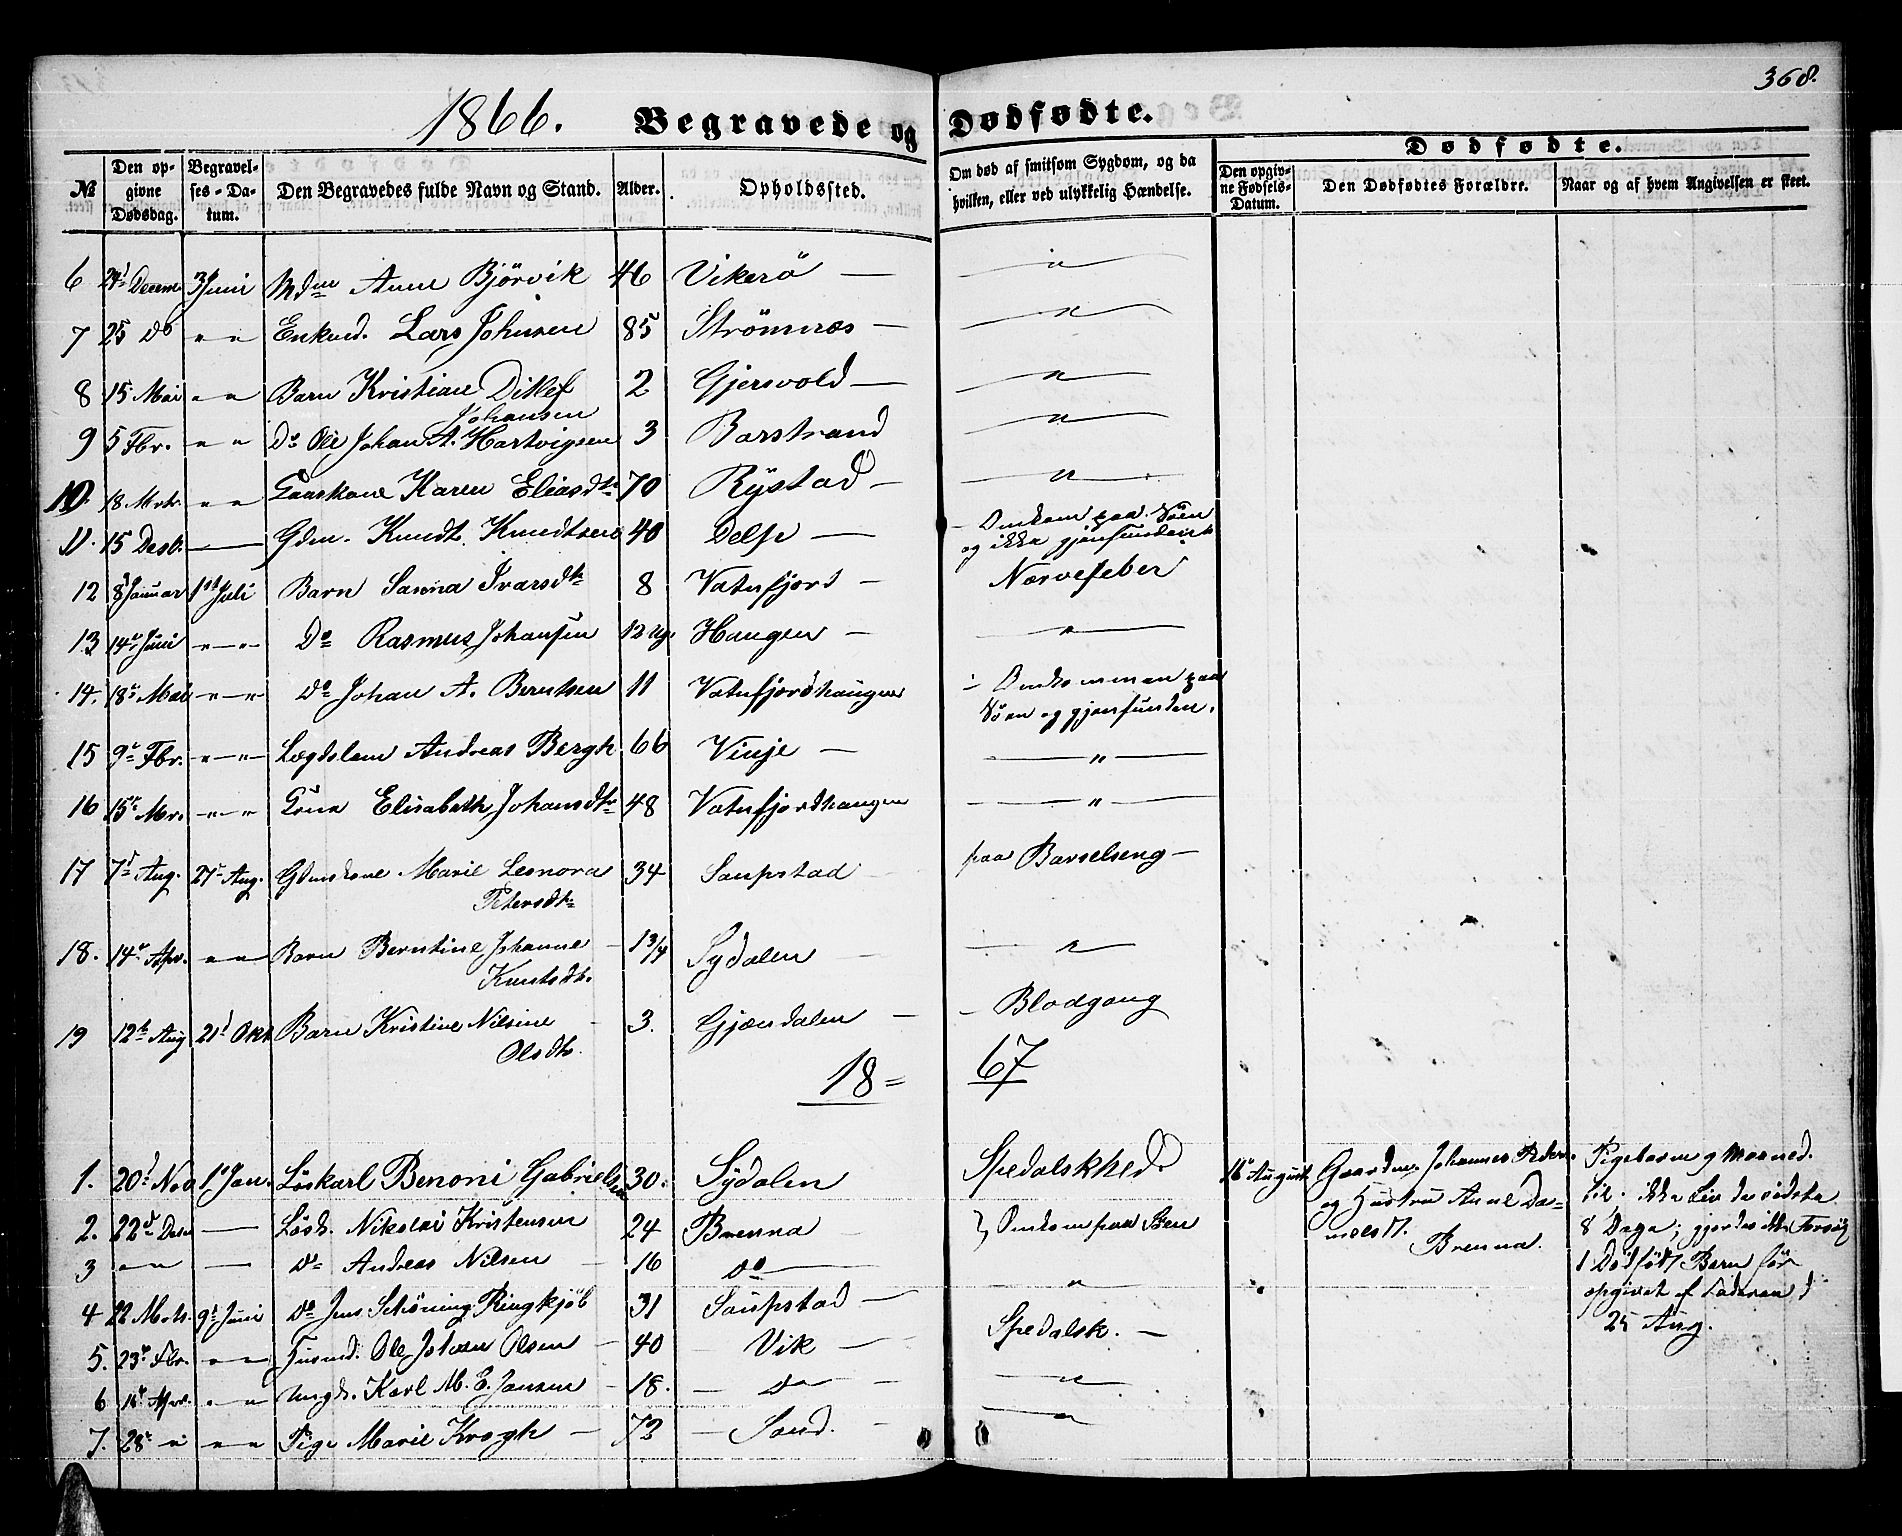 368.
1866. Begravede og Dødfødte.
Dødfødte.
№ Den opgivne Dødsdag. Begravelses-Datum. Den Begravedes fulde Navn og Stand. Alder. Opholdssted. Om død af smitsom Sygdom, og da hvilken, eller ved ulykkelig Hændelse. Den opgivne Fødsels-Datum. Den Dødfødtes Forældre. Naar og af hvem Angivelsen er skeet.
6 24d Decem 3 Juni Mdme Anne Björvik 46 Vikerö — "
7 25 Do " " Enkmd. Lars Johnsen 85 Strömnæs — "
8 15 Mai " " Barn Kristian Ditlef Johansen 2 Gjersvold — "
9 5 Fbr. " " Do Ole Johan A. Hartvigsen 3 Barstrand "
10. 18 Mrts. " " Kaarkone Karen Eliasdtr 70 Rystad — "
11. 15 Desb. — Gdm. Knudt Knudtsen 40 Delp — Omkom paa Söen
og ikke gjenfunden
12 8d Januar 1st Juli Barn Sanna Ivarsdtr 8 Vatnfjord — Nervefeber
13 14de Juni " — " Do Rasmus Johansen 12 Ug. Haugen — "
14. 18de Mai " — " Do Johan A. Berntsen 11 Vatnfjordhaugen — Omkommen paa
Söen og gjenfunden.
15 9de Fbr. " — " Lægdslem Andreas Bergh 66 Vinje — "
16 15de Mr. " — " Elisabeth Johansdtr 48 Vatnfjordhaugen — "
17 7d Aug. 27de Aug. Gdmdskone Marie Leonora Petersdtr 34 Saupstad paa Barselseng —
18. 14de Apr. " — " Barn Berntine Johanne Knutsdtr. 1 3/4 Sydalen — "
19 12te Aug 21d Okt Barn Kristine Nilsine Olsdtr. 3. Gjændalen — Blodgang
18 = 67
1. 20d Nov 1st Jan. Löskarl Benoni Gabrielsen 30. Sydalen Spedalskhed 16de August Gaardm. Johannes Peder-
og Hustru Anne Da-
Brenna.
Pigebarn 9 Maaned.
til. ikke Liv de sidste
8 Dage; gjordes ikke Forsög
1 Dödfödt Barn för
opgivet af Faderen d
25 Aug.
2. 22d Desbr — Lösk. Nikolai Kristensen 24 Brenna } Omkom paa Söen
3 " " — Do Andreas Nilsen 16 Do — "
4 22 Mrts. 9d Juni Do Jens Schöning Ringkjöb 31 Saupstad —
5. 23de Fbr. " — " Husmd. Ole Johan Olsen 40 Vik — Spedalsk. —
6 16de Apr. " — " Ungk. Karl M. E. Jansen 18. — Do — "
7. 28de " " — " Pige Marie Krogh 72 — Sand. "